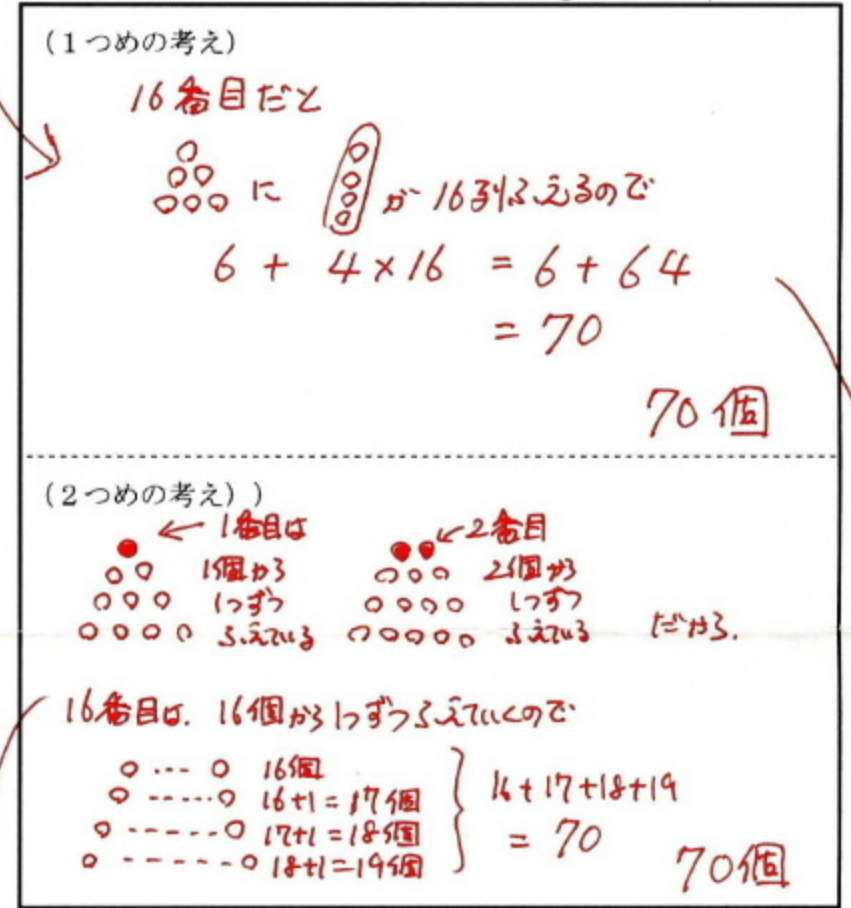 (1つめの考え)
16番目だと
に が 16列ふえるので
6 + 4×16 = 6 + 64
= 70
70個
(2つめの考え))
1番目は
1個から
1つずつ
ふえている
2番目
2個から
1つずつ
ふえている
だから.
16番目は. 16個から1つずつふえていくので
16個
16+1=17個
17+1=18個
18+1=19個
16+17+18+19
= 70
70個